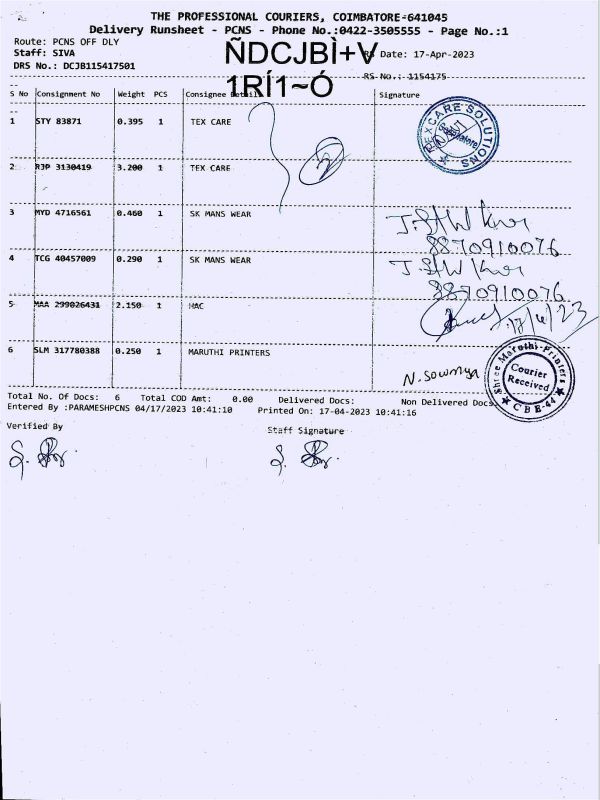 THE PROFESSIONAL COURIERS, COIMBATORE-641045
Delivery Runsheet - PCNS - Phone No.:0422-3505555 - Page No.:1
Route: PCNS OFF DLY
Staff: SIVA
DRS No.: DCJB115417501
ÑDCJBÌ+V
1RÍ1~Ó
RS Date: 17-Apr-2023
RS No.: 1154175
S No Consignment No Weight PCS Consignee Details Signature
1 STY 83871 0.395 1 TEX CARE
REXCARE SOLUTIONS
Coimbatore
2 RJP 3130419 3.200 1 TEX CARE
3 MYD 4716561 0.460 1 SK MANS WEAR
8870910076
4 TCG 40457009 0.290 1 SK MANS WEAR
8870910076
5 MAA 299026431 2.150 1 HAC 17/4/23
6 SLM 317780388 0.250 1 MARUTHI PRINTERS N. Sowmya
Shree Maruthi Printers
Courier
Received
CBE-44
Total No. Of Docs: 6 Total COD Amt: 0.00 Delivered Docs: Non Delivered Docs
Entered By :PARAMESHPCNS 04/17/2023 10:41:10 Printed On: 17-04-2023 10:41:16
Verified By Staff Signature